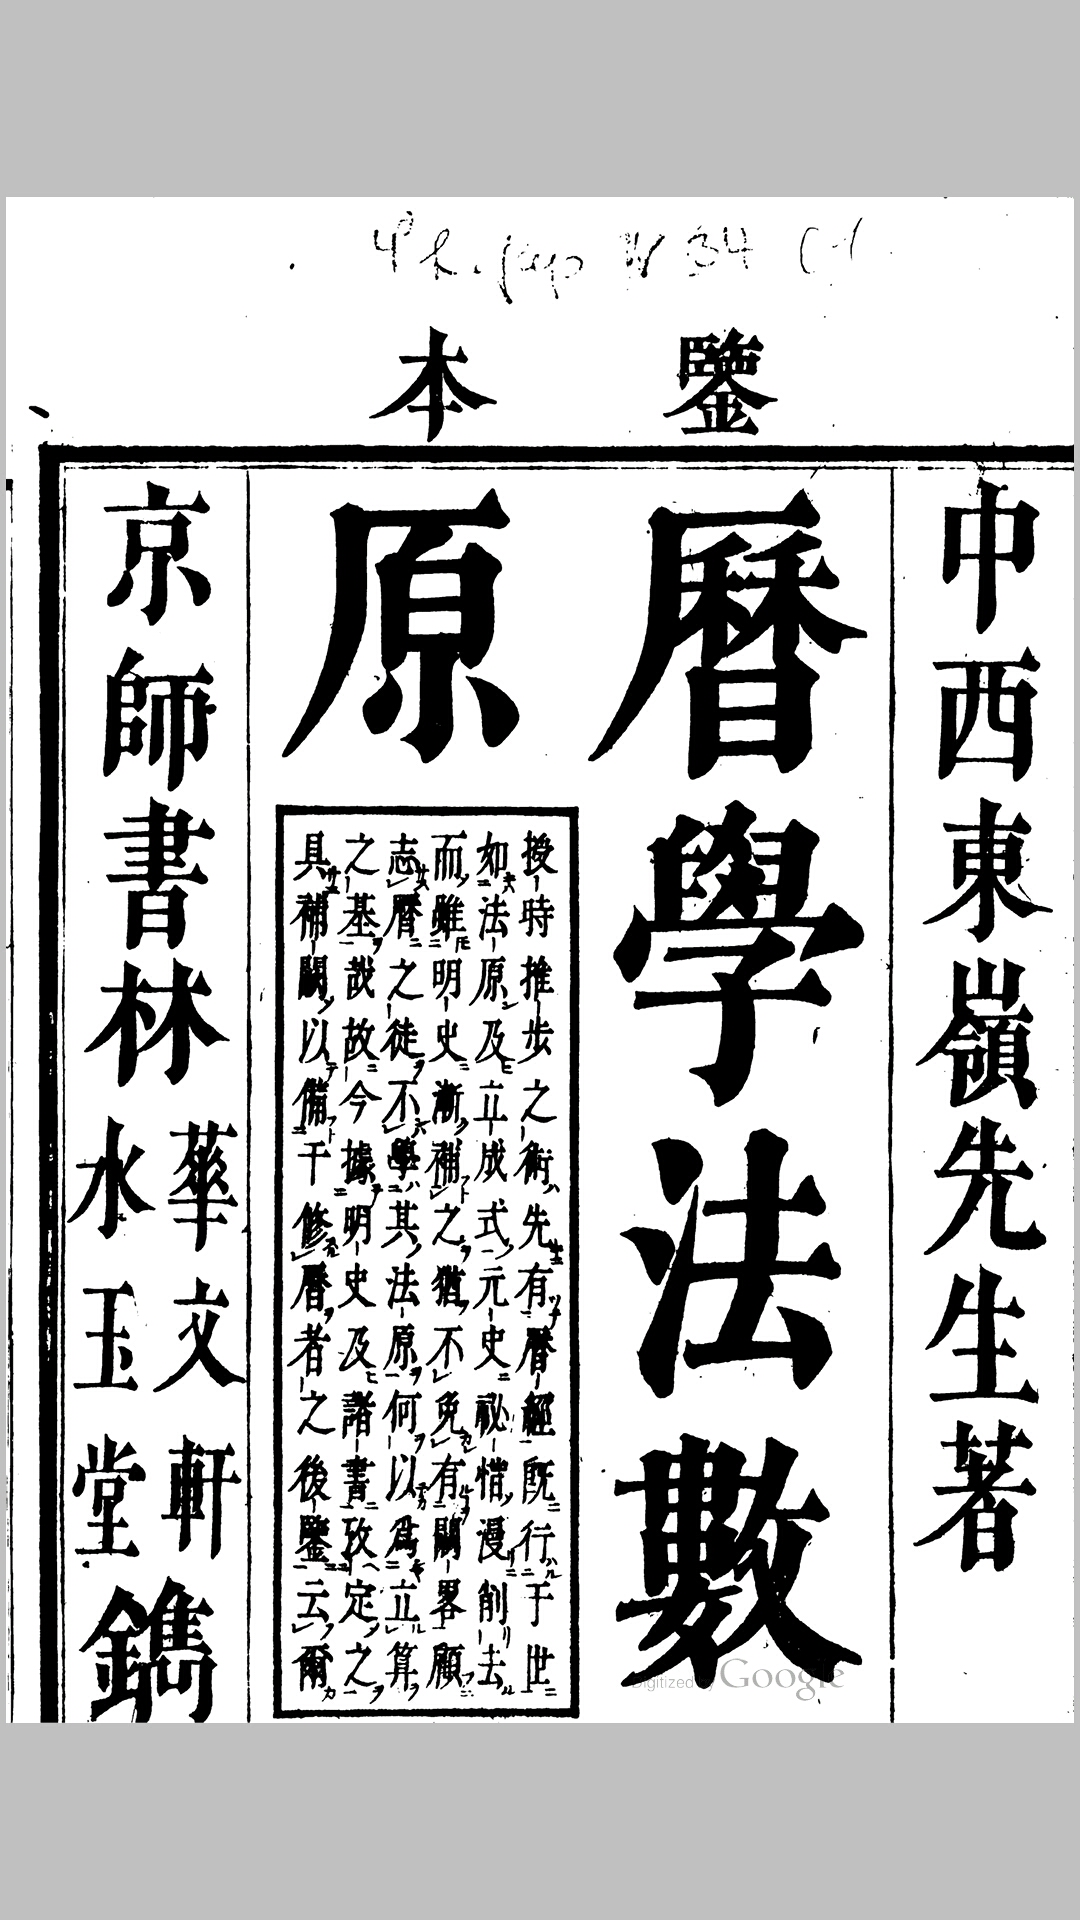 鑒本
中西東嶺先生著
曆學法數
原
授時推步之術先有曆經既行于世
如法原及立成式元史祕惜漫削去
而雖明史漸補之猶不免有闕畧顧
志曆之徒不學其法原何以爲立算
之基哉故今據明史及諸書攷定之
具補闕以備于修曆者之後鑒云爾
京師書林
華文軒
水玉堂
鐫
Digitized by Google